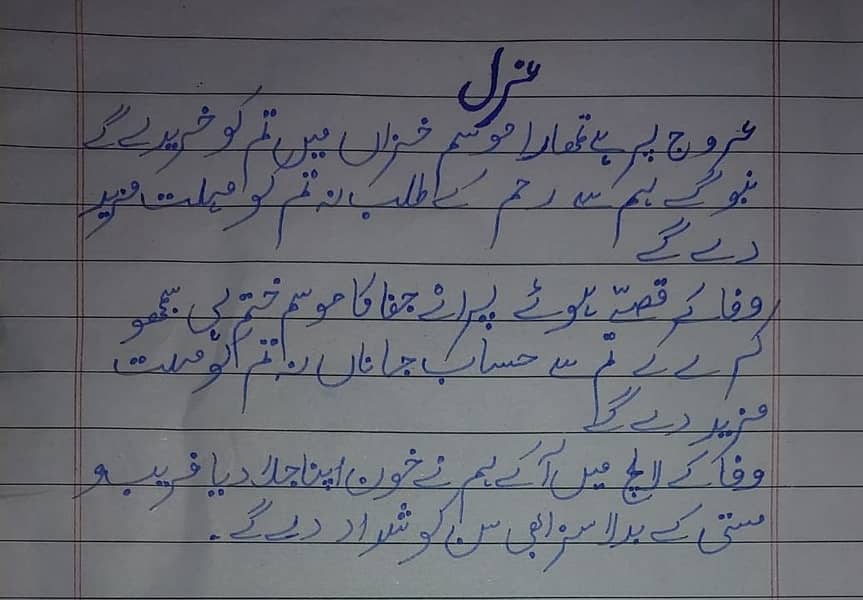 غزل
عروج پر ہے تمھارا موسم خزاں میں تم کو خرید لے گے
بنو گے ہم سے رحم کے طلب نہ تم کو مہلت مزید
دے گے
وفا کے قصّے ہوئے پرانے جفا کا موسم ختم ہی سمجھو
کرے گے تم سے حساب جاناں نہ تم کو مہلت
مزید دے گے
وفا کے لالچ میں آ کے ہم نے خون اپنا جلا دیا فریب و
مستی کے بدلا سزا بھی سن کو شداد دے گے۔